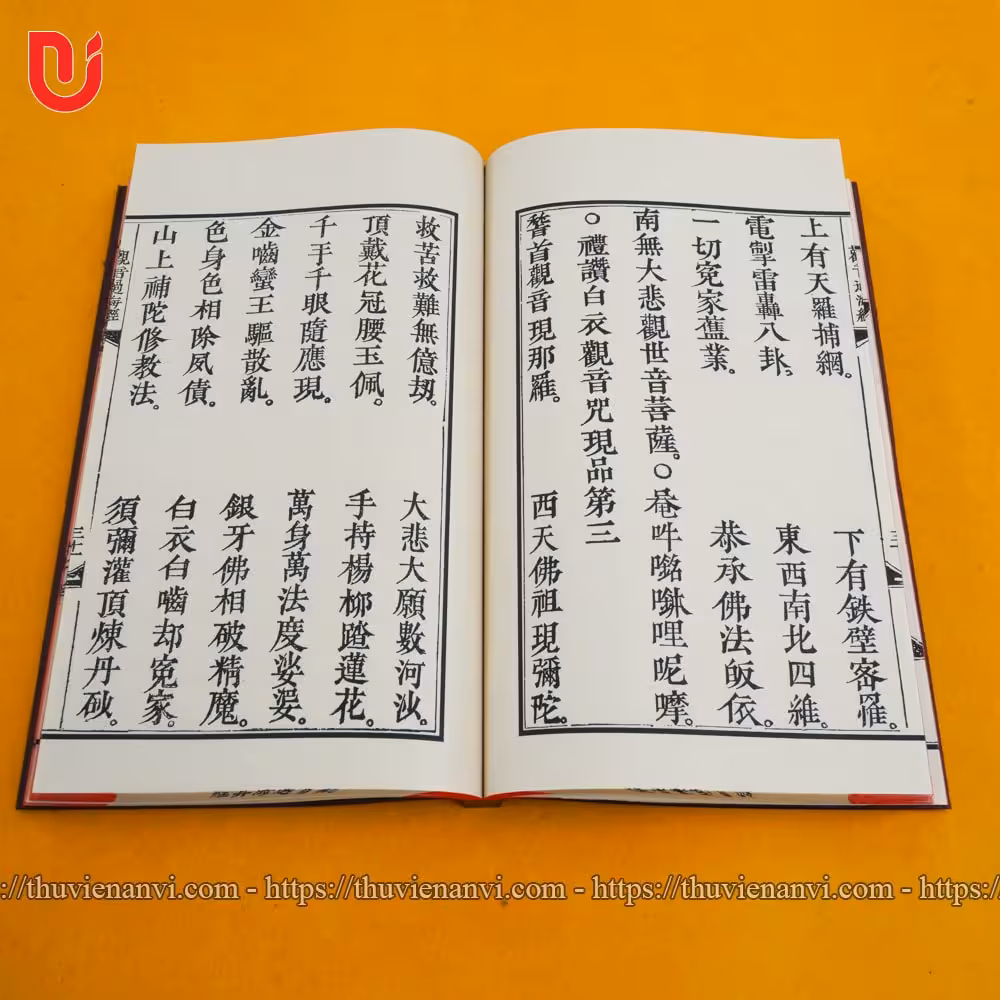 上有天羅捕網。
下有鉄壁宻羅。
電掣雷轟八卦。
東西南北四維。
一切寃家舊業。
恭承佛法皈依。
南無大悲觀世音菩薩。○唵吽㗭㘕哩呢嚤。
○禮讃白衣觀音咒現品第三
稽首觀音現那羅。
西天佛祖現彌陀。
救苦救難無億刼。
大悲大願數河沙。
頂戴花冠腰玉佩。
手持楊柳踏蓮花。
千手千眼隨應現。
萬身萬法度娑婆。
金嚙蠻王驅散亂。
銀牙佛相破精魔。
色身色相除夙債。
白衣白嚙却寃家。
山上補陀修教法。
須彌灌頂煉丹砂。
觀音過海經
https://thuvienanvi.com - https://thuvienanvi.com - https://thuvienanvi.com